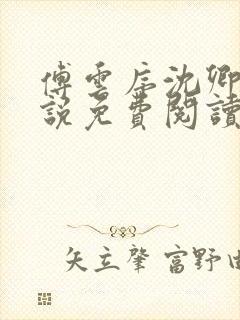 傅雲庭沈卿
說免費閱讀
矢立肇 富野由